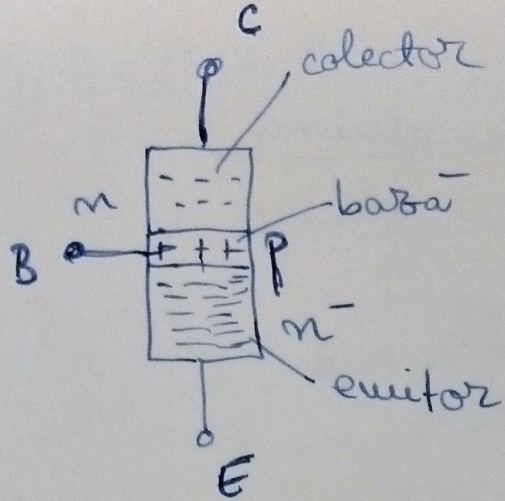 C
colector
n
bază
B
+ + +
P
n⁻
emitor
E